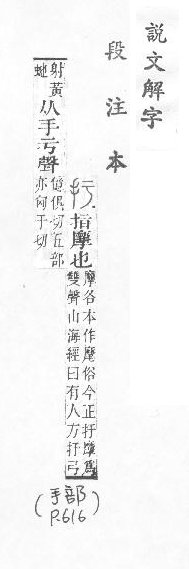 說文解字
段注本
扜
指摩也
摩各本作麾俗今正扜摩爲
雙聲山海經曰有人方扜弓
射黃
虵
从手亏聲
億俱切五部
亦向于切
(手部
P.616)